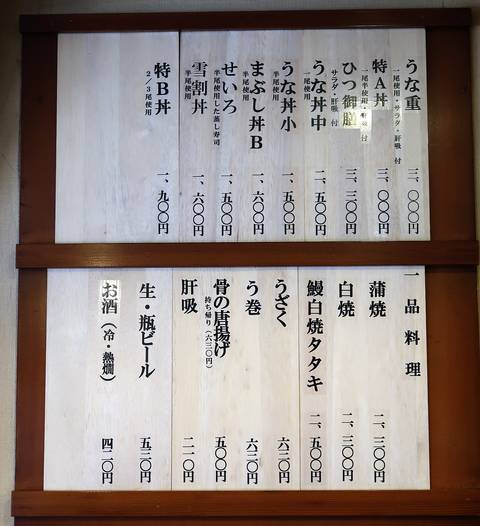 うな重 三、〇〇〇円
一尾使用・サラダ・肝吸 付
特A丼 三、〇〇〇円
一尾半使用・肝吸 付
ひつ御膳 三、三〇〇円
サラダ・肝吸 付
うな丼中 二、五〇〇円
一尾使用
うな丼小 一、五〇〇円
半尾使用
まぶし丼B 一、六〇〇円
半尾使用
せいろ 一、五〇〇円
半尾使用した蒸し寿司
雪割丼 一、六〇〇円
半尾使用
特B丼 一、九〇〇円
2/3尾使用
一品料理
蒲焼 二、三〇〇円
白焼 二、三〇〇円
鰻白焼タタキ 二、五〇〇円
うざく 六三〇円
う巻 六三〇円
骨の唐揚げ 五〇〇円
持ち帰り(六三〇円)
肝吸 二一〇円
生・瓶ビール 五三〇円
お酒(冷・熱燗) 四二〇円